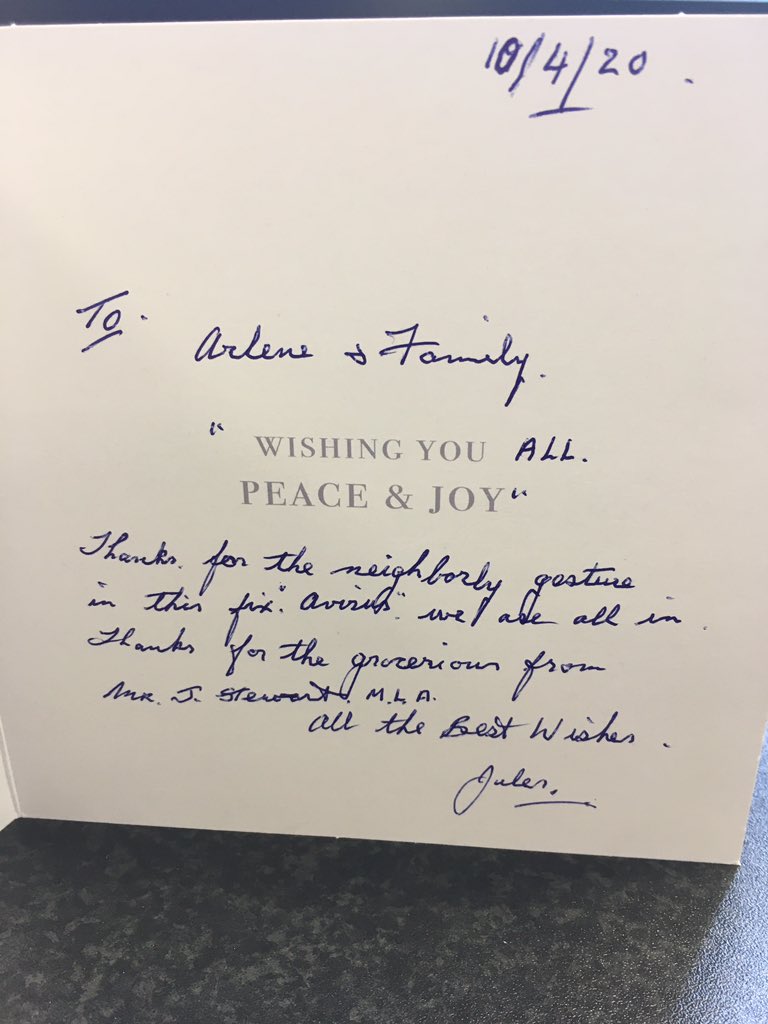 10/4/20.
To.
Arlene & Family.
" WISHING YOU ALL.
PEACE & JOY"
Thanks. for the neighborly gesture
in this fix "avirus" we are all in.
Thanks for the grocerious from
Mr. J. Stewart. M.L.A.
All the Best Wishes.
Jules.